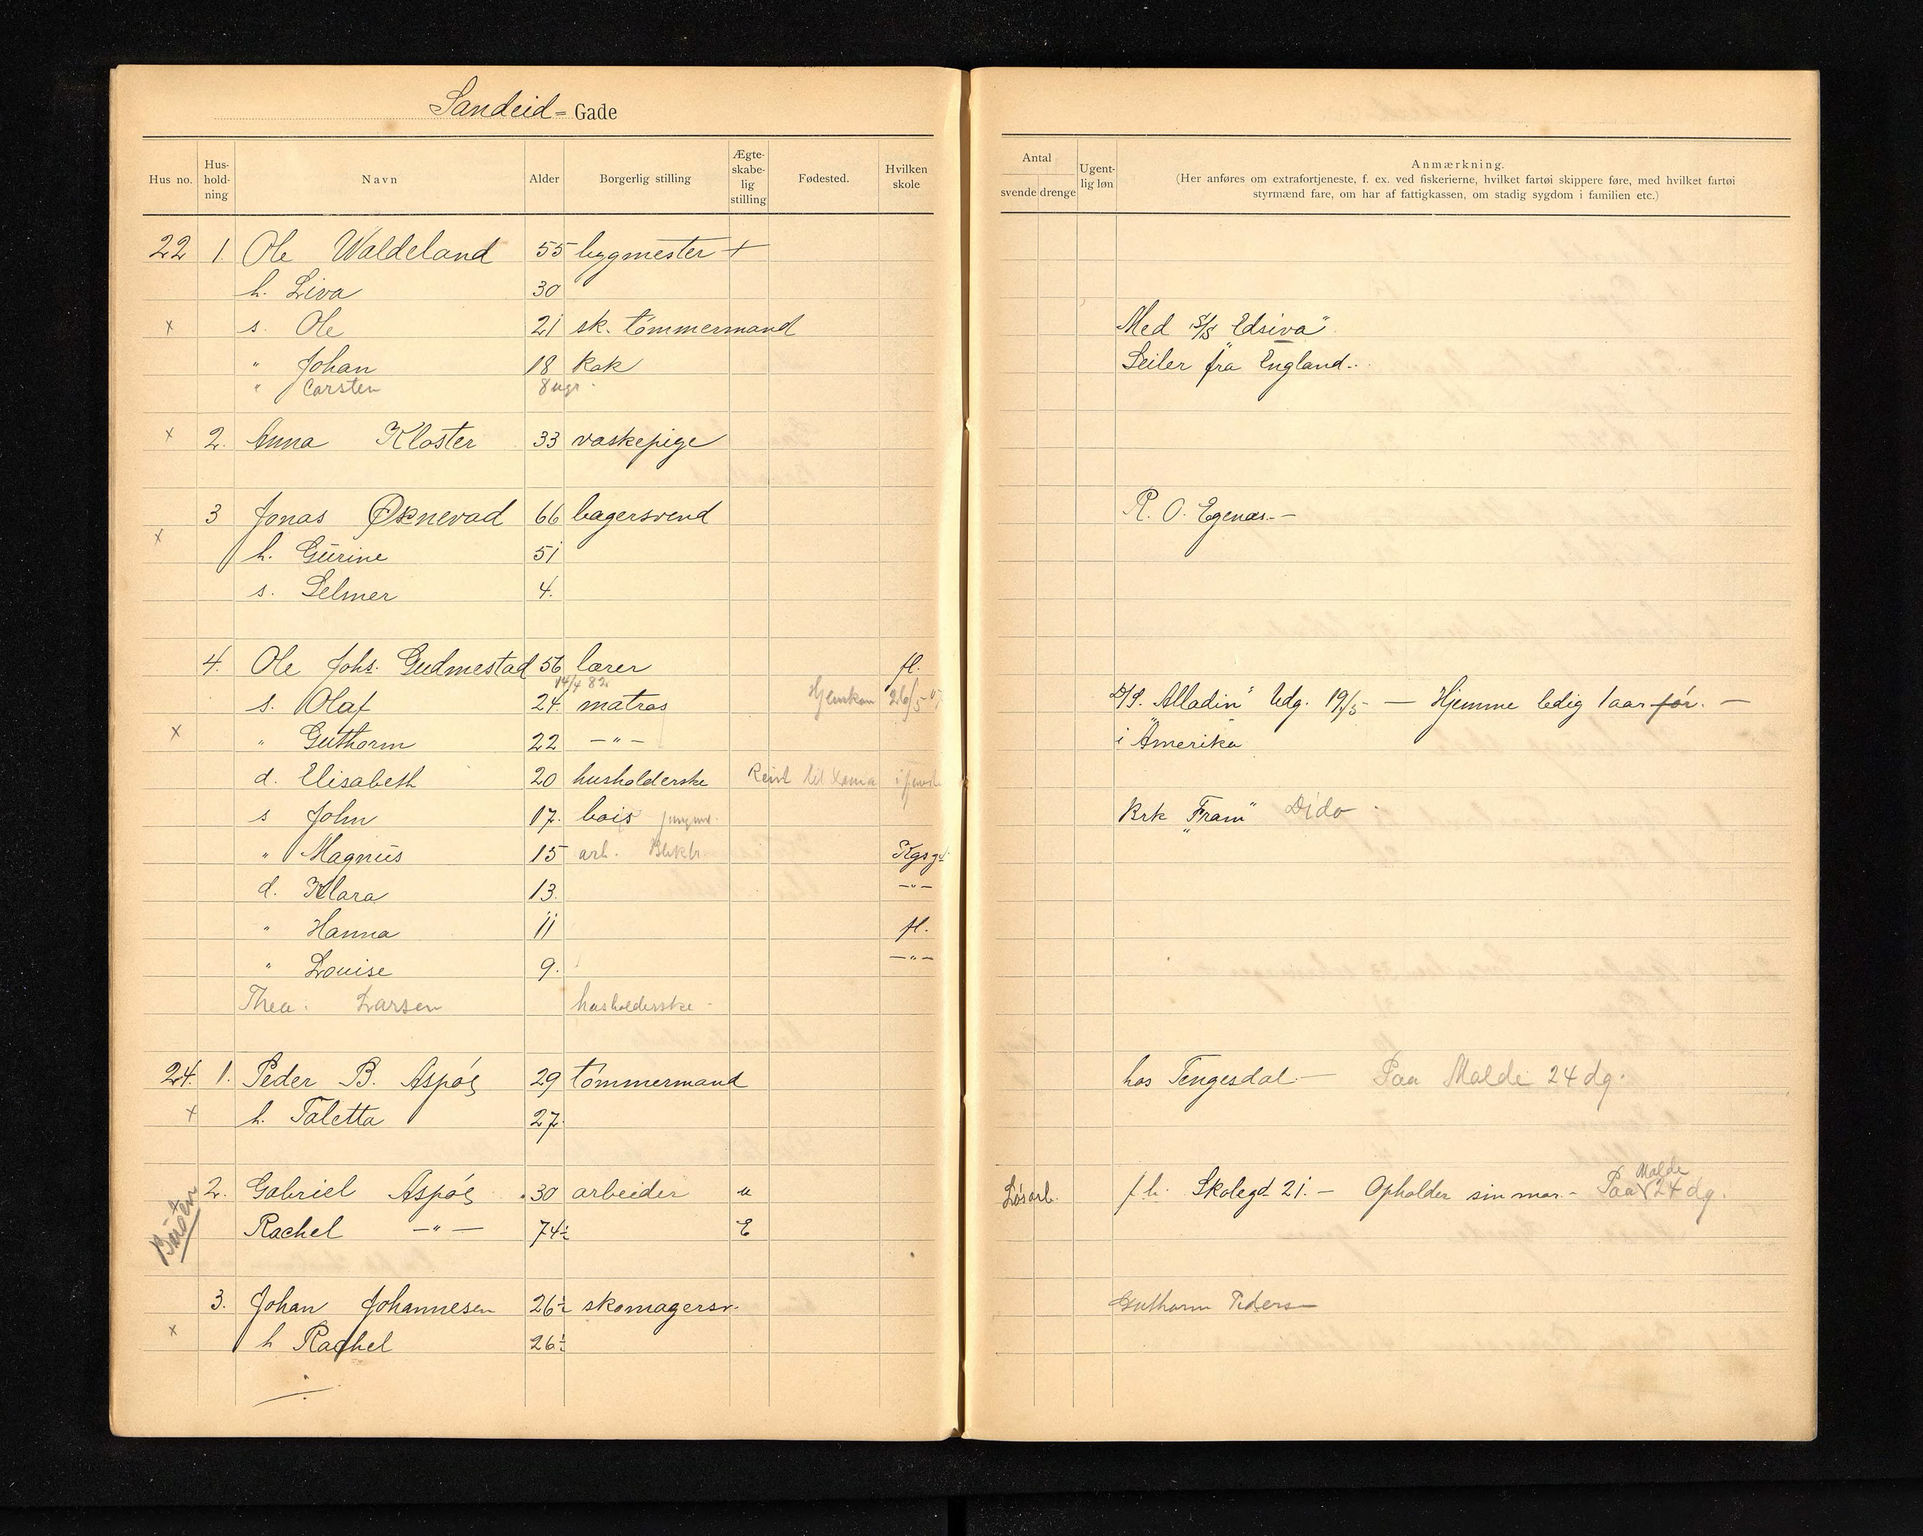 Sandeid= Gade
Hus no. Hus-hold-ning Navn Alder Borgerlig stilling Ægte-skabe-lig stilling Fødested. Hvilken skole
Antal
svende drenge Ugent-lig løn
Anmærkning.
(Her anføres om extrafortjeneste, f. ex. ved fiskerierne, hvilket fartøi skippere føre, med hvilket fartøi
styrmænd fare, om har af fattigkassen, om stadig sygdom i familien etc.)
22 1 Ole Waldeland 55 bygmester +
h. Liva 30
x s. Ole 21 sk. tömmermand Med S/S "Edsiva"
" Johan 18 kok Seiler fra England.
" Carsten 8 ugr.
x 2. Anna Kloster 33 vaskepige
3 Jonas Øknevad 66 bagersvend R. O. Egenæs.–
x h. Gurine 51
s. Selmer 4.
4. Ole Johs. Gudmestad 56 lærer fl.
14/4 82
s. Olaf 24. matros Hjemkom 26/5 D/S. "Alladin" Udg. 19/5 – Hjemme ledig 1 aar før. –
x " Guthorm 22 – " – i Amerika
d. Elisabeth 20 husholderske Reist til
s John 17. bois jungm. Brk "Fram" Dido
" Magnus 15 arb. Blikk. Kgsgt
d. Klara 13. – " –
" Hanna 11 fl.
" Louise 9. – " –
Thea Larsen husholderske
24. 1. Peder B. Aspöe 29 tömmermand hos Tengesdal – Paa Malde 24 dg.
x h. Taletta 27.
2. Gabriel Aspöe 30 arbeider u Lösarb. f. h. Skolegd 21. – Opholder sin mor. – Paa Malde 24 dg.
Rachel – " – 74½ E
3. Johan Johannesen 26½ skomagersv. Guthorm Peders
x h Rachel 26½